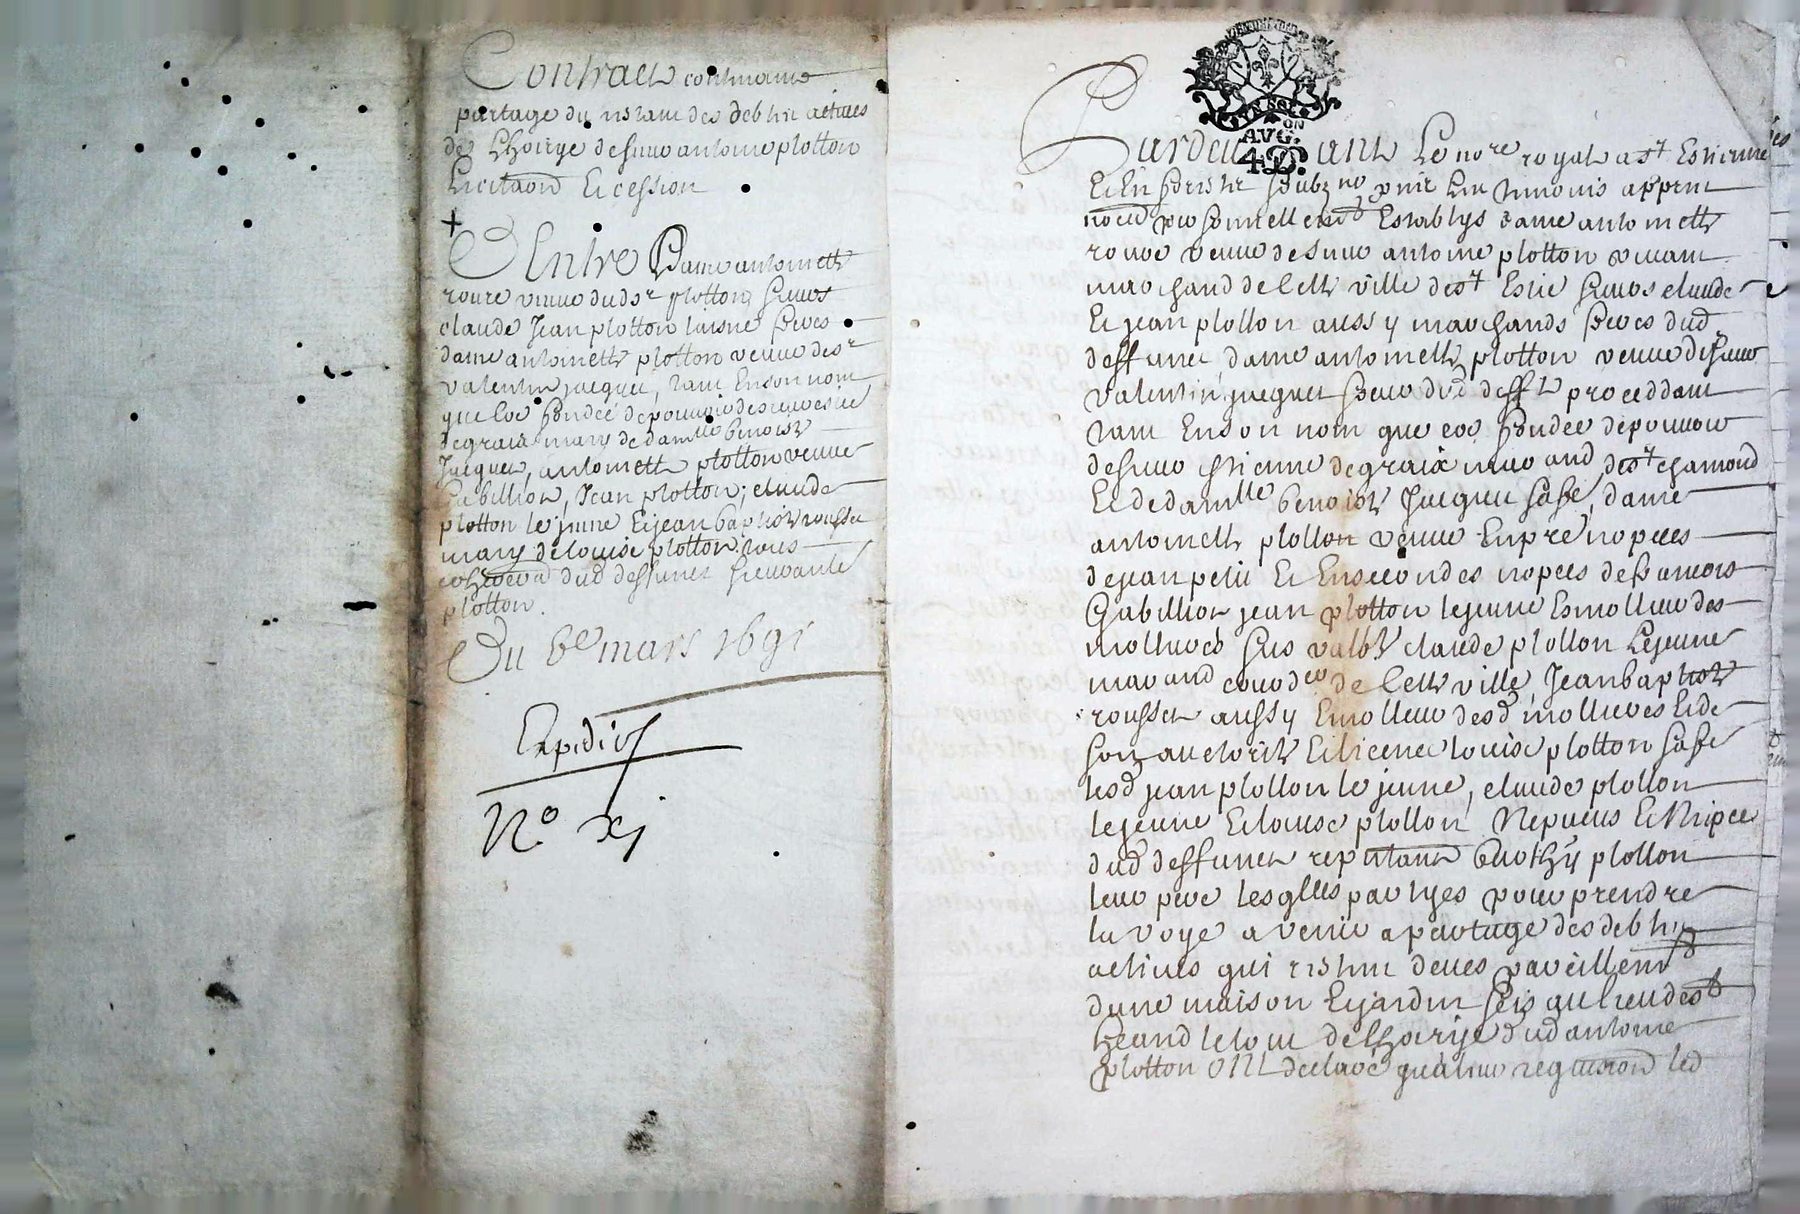 Contract contenant
partage du restant des debtes actives
de Lhoirye de sieur antoine plotton
Licitaon Et cession
+
Entre Dame antoinette
roure veuve dudt sr plotton, sieurs
claude Jean plotton laisné freres
dame antoinette plotton veuve de sr
valentin jacquet, tant En son nom
que loe fondée de pouvoir de
degraix mary de damlle benoiste
Jacquet, antoinette plotton veuve
Gabillion, Jean plotton, claude
plotton le jeune Et jean baptiste rousset
mary de louise plotton tous
dud deffunct sieur ante
plotton.
Du 6e mars 1691
Expedié
N.o xj
AVG.
ON
Pardevant Le nore royal a st Estienne
Et En presence soubz no
personnellemt Establys dame antoinette
roure veuve de sieur antoine plotton vivant
marchand de cette ville de st Estne sieurs claude
Et jean plotton aussy marchands freres dud
deffunct, dame antoinette plotton veuve de sieur
valentin jacquet soeur dud defft proceddant
tant En son nom que eoe fondée de pouvoir
de sieur Estienne degraix marand de st chamond
Et de damlle benoiste Jacquet sa fe, dame
antoinette plotton veuve En pres nopces
de jean petit Et En secondes nopces de francois
Gabillion jean plotton le jeune Esmolleur des
mollieres claude plotton Le jeune
marand de cette ville, Jean baptiste
rousset aussy Emolleur desd mollieres Et de
son auctorité Et licence louise plotton sa fe
lesd jean plotton le jeune, claude plotton
le jeune Et louise plotton Nepveus Et Niepce
dud deffunct reptant plotton
leur pere Lesqlles partyes pour prendre
la voye a venir a partage des debtes
actives qui restent deues pareillemt
dune maison Et jardin sis au lieu de st
heand le tout de Lhoirye dud antoine
plotton ONt declaré qua leur requision led